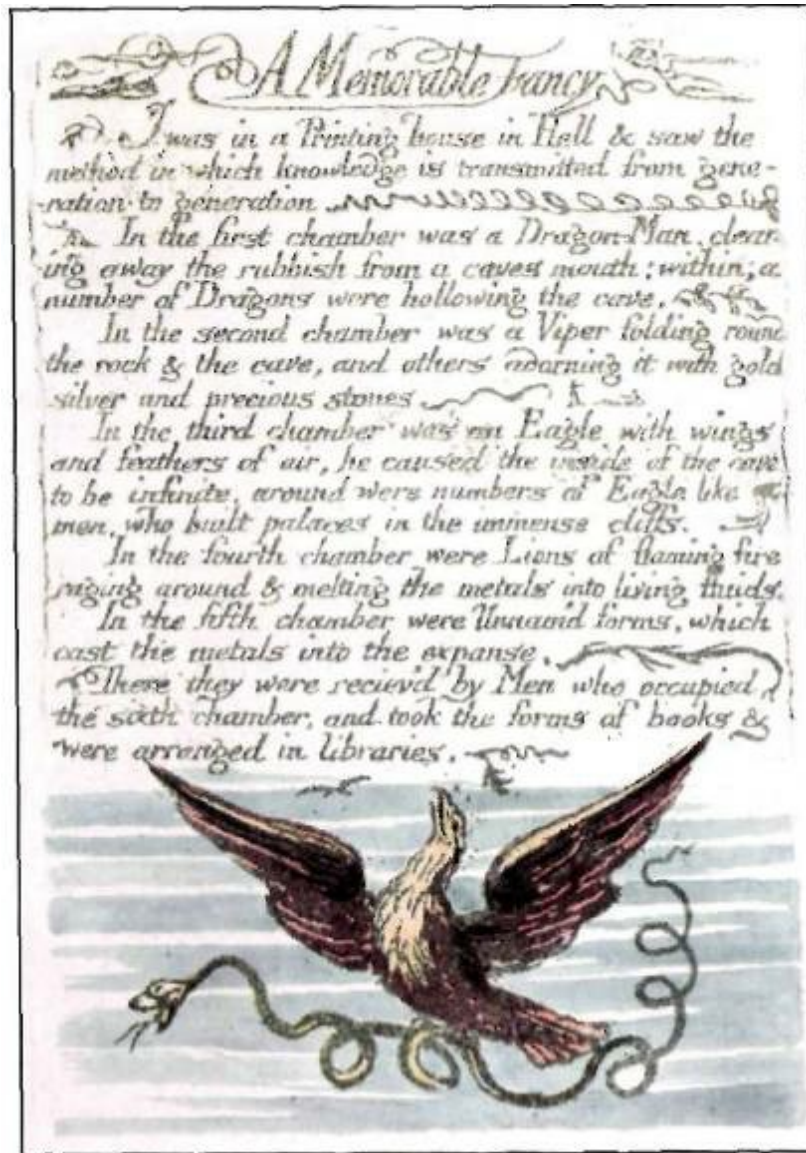 A Memorable Fancy
I was in a Printing house in Hell & saw the
method in which knowledge is transmitted from gene-
-ration to generation
In the first chamber was a Dragon-Man, clear-
ing away the rubbish from a caves mouth; within, a
number of Dragons were hollowing the cave.
In the second chamber was a Viper folding round
the rock & the cave, and others adorning it with gold
silver and precious stones
In the third chamber was an Eagle with wings
and feathers of air, he caused the inside of the cave
to be infinite, around were numbers of Eagle like
men, who built palaces in the immense cliffs.
In the fourth chamber were Lions of flaming fire
raging around & melting the metals into living fluids.
In the fifth chamber were Unnam'd forms, which
cast the metals into the expanse.
There they were reciev'd by Men who occupied
the sixth chamber, and took the forms of books &
were arranged in libraries.